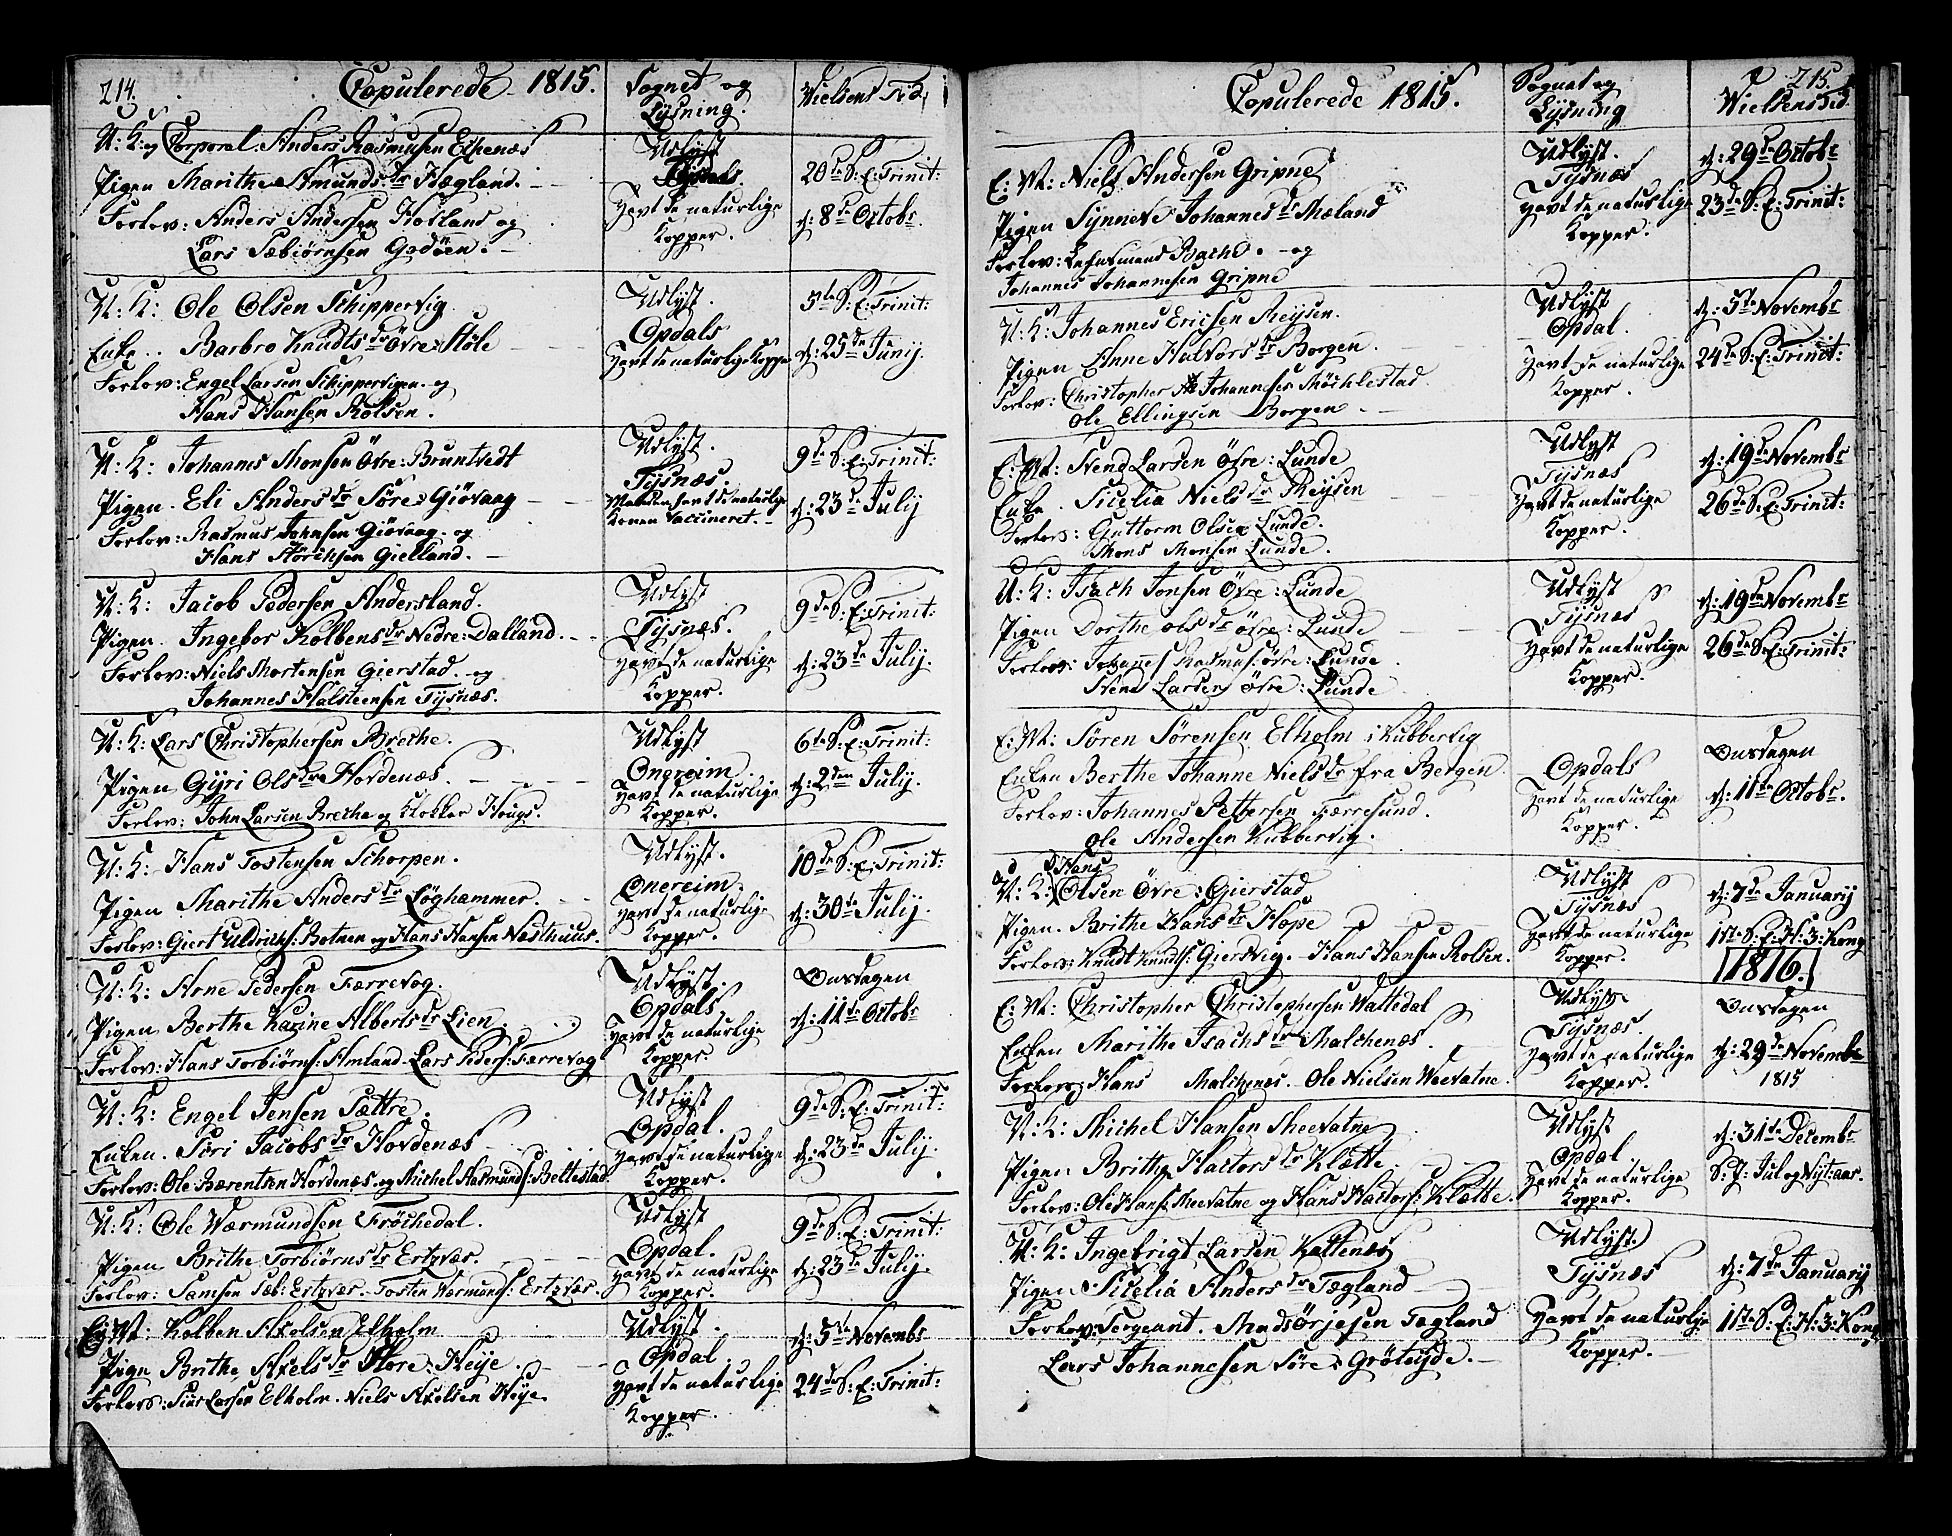 214.
Copulerede 1815.
Sognet og
Lysning.
Vielsens Tid
U: K: og Corporal Anders Rasmusen Ekenæs
Pigen Marithe Amunds dr Hægland.
Forlov: Anders Andersen Hofland og
Lars Sæbiørnsen Godøen.
Udlyst
havt de naturlige
Kopper.
20de S: E: Trinit:
d: 8de Octobr.
U: K: Ole Olsen Schippervig
Enke Barbro Knudts dr Øvre: Støle
Forlov: Engel Larsen Schippervigen og
Hans Hansen Rolsen.
Udlyst.
Opdals
havt de naturlige Kopper
5te S: E: Trinit:
d: 25de Junij.
U: K: Johannes Monsen Øvre: Bruntvedt
Pigen Eli Anders dr Søre: Giøvaag
Forlov: Rasmus Johnsen Giøvaag og
Hans Hørichsen Gielland.
Udlyst.
Tysnæs.
Manden havt de naturlige
Konen Vaccineret.
9de S: E: Trinit:
d: 23de Julij
U: K: Jacob Pedersen Andersland.
Pigen Ingebor Kolbens dr Nedre: Dalland.
Forlov: Niels Mortensen Gierstad og
Johannes Halsteensen Tysnæs.
Udlyst
Tysnæs.
havt de naturlige
Kopper.
9de S: E: Trinit:
d: 23de Julij.
U: K: Lars Christophersen Breche.
Pigen Gyri Ols dr Hovdenæs.
Forlov: John Larsen Breche og Klokker Houge.
Udlyst
Onereim
havt de naturlige
Kopper.
6te S: E: Trinit:
d: 2den Julij.
U: K: Hans Tostensen Schorpen.
Pigen Marithe Anders dr Løghammer.
Forlov: Giert Uldrichs: Botnen og Hans Hansen Nesthuus.
Udlyst.
Onereim
havt de naturlige
Kopper.
10de S: E: Trinit:
d: 30te Julij.
U: K: Arne Pedersen Færrevog.
Pigen Berthe Karine Alberts dr Lien.
Forlov: Hans Torbiørns: Amland. Lars Peders: Færrevog
Udlyst.
Opdals
havt de naturlige
Kopper.
Onsdagen
d: 11te Octobr
U: K: Engel Jensen Sættre.
Enken Siri Jacobs dr Hovdenæs
Forlov: Ole Bærentsen Hovdenæs og Michel Aasmunds: Bettestad
Udlyst
Opdal.
havt de naturlige
Kopper.
9de S: E: Trinit:
d: 23de Julij.
U: K: Ole Wærmundsen Frøchedal.
Pigen Brithe Torbiørns dr Ertzvær.
Forlov: Samson Sæb: Ertzvær. Tosten Wærmunds: Ertzvær.
Udlyst
Opdal.
havt de naturlige
Kopper.
9de S: E: Trinit:
d: 23de Julij.
E: M: Kolben Axelsen Elholm
Pigen Brithe Axels dr Store: Heye
Forlov: Siur Larsen Elholm. Niels Axelsen Heye.
Udlyst.
Opdal
havt de naturlige
Kopper.
d: 5te Novembr
24de S: E: Trinit:
215.
Copulerede 1815.
Sognet og
Lysning
Vielsens Tid.
E: M: Niels Andersen Gripne
Pigen Synneve Johannes dr Mæland
Forlov: Lensmand Bache og
Johannes Johannesen Gripne
Udlyst.
Tysnæs
havt de naturlige
Kopper.
d: 29de Octobr
23de S: E: Trinit:
U: K: Johannes Ericsen Reysen.
Pigen Anne Halvors dr Borgen.
Forlov: Christopher Johannesen Møchlestad
Ole Ellingsen Borgen.
Udlyst
Opdal.
havt de naturlige
Kopper.
d: 5te Novembr
24de S: E: Trinit:
E: M: Svend Larsen Øvre: Lunde
Enke Sicelia Niels dr Reysen
Forlov: Guttorm Olsen Lunde.
Mons Monsen Lunde.
Udlyst
Tysnæs
havt de naturlige
Kopper.
d: 19de Novembr
26de S: E: Trinit:
U: K: Isach Jonsen Øvre: Lunde
Pigen Dorthe Ols dr Øvre: Lunde
Forlov: Johannes Rasmus: Øvre: Lunde
Svend Larsen Øvre: Lunde
Udlyst
Tysnæs
havt de naturlige
Kopper.
d: 19de Novembr
26de S: E: Trinit:
E: M: Søren Sørensen Elholm i Kubbervig
Enken Berthe Johanne Niels dr fra Bergen.
Forlov: Johannes Pettersen Færresund.
Ole Andersen Kubbervig.
Opdals
havt de naturlige
Kopper.
Onsdagen
d: 11te Octobr.
Hans
U: K: Olsen Øvre: Gierstad
Pigen Brithe Hans dr Hope
Forlov: Knudt Knuds: Giersvig. Hans Hansen Rolsen.
Udlyst
Tysnæs
havt de naturlige
Kopper.
d: 7de Januarij
1ste S: E: H: 3: Kong
1816.
E: M: Christopher Christophersen Wattedal
Enken Marithe Isachs dr Malchenæs.
Forlov: Hans Malchenæs. Ole Nielsen Wevatne.
Udlyst
Tysnæs.
havt de naturlige
Kopper.
Onsdagen
d: 29de Novembr
1815
U: K: Michel Hansen Meevatne
Pigen Brithe Hactors dr Klætte
Forlov: Ole Hans: Meevatne og Hans Hactors: Klætte.
Udlyst
Opdal
havt de naturlige
Kopper.
d: 31te Decembr
S: I: Jul og Nyt:aar.
U: K: Ingebrigt Larsen Kattenæs
Pigen Sicelia Anders dr Tægland
Forlov: Sergeant Mads Ørjesen Tægland
Lars Johannesen Søre: Grøteyde.
Udlyst
Tysnæs
havt de naturlige
Kopper.
d: 7de Januarij
1ste S: E: H: 3: Kong